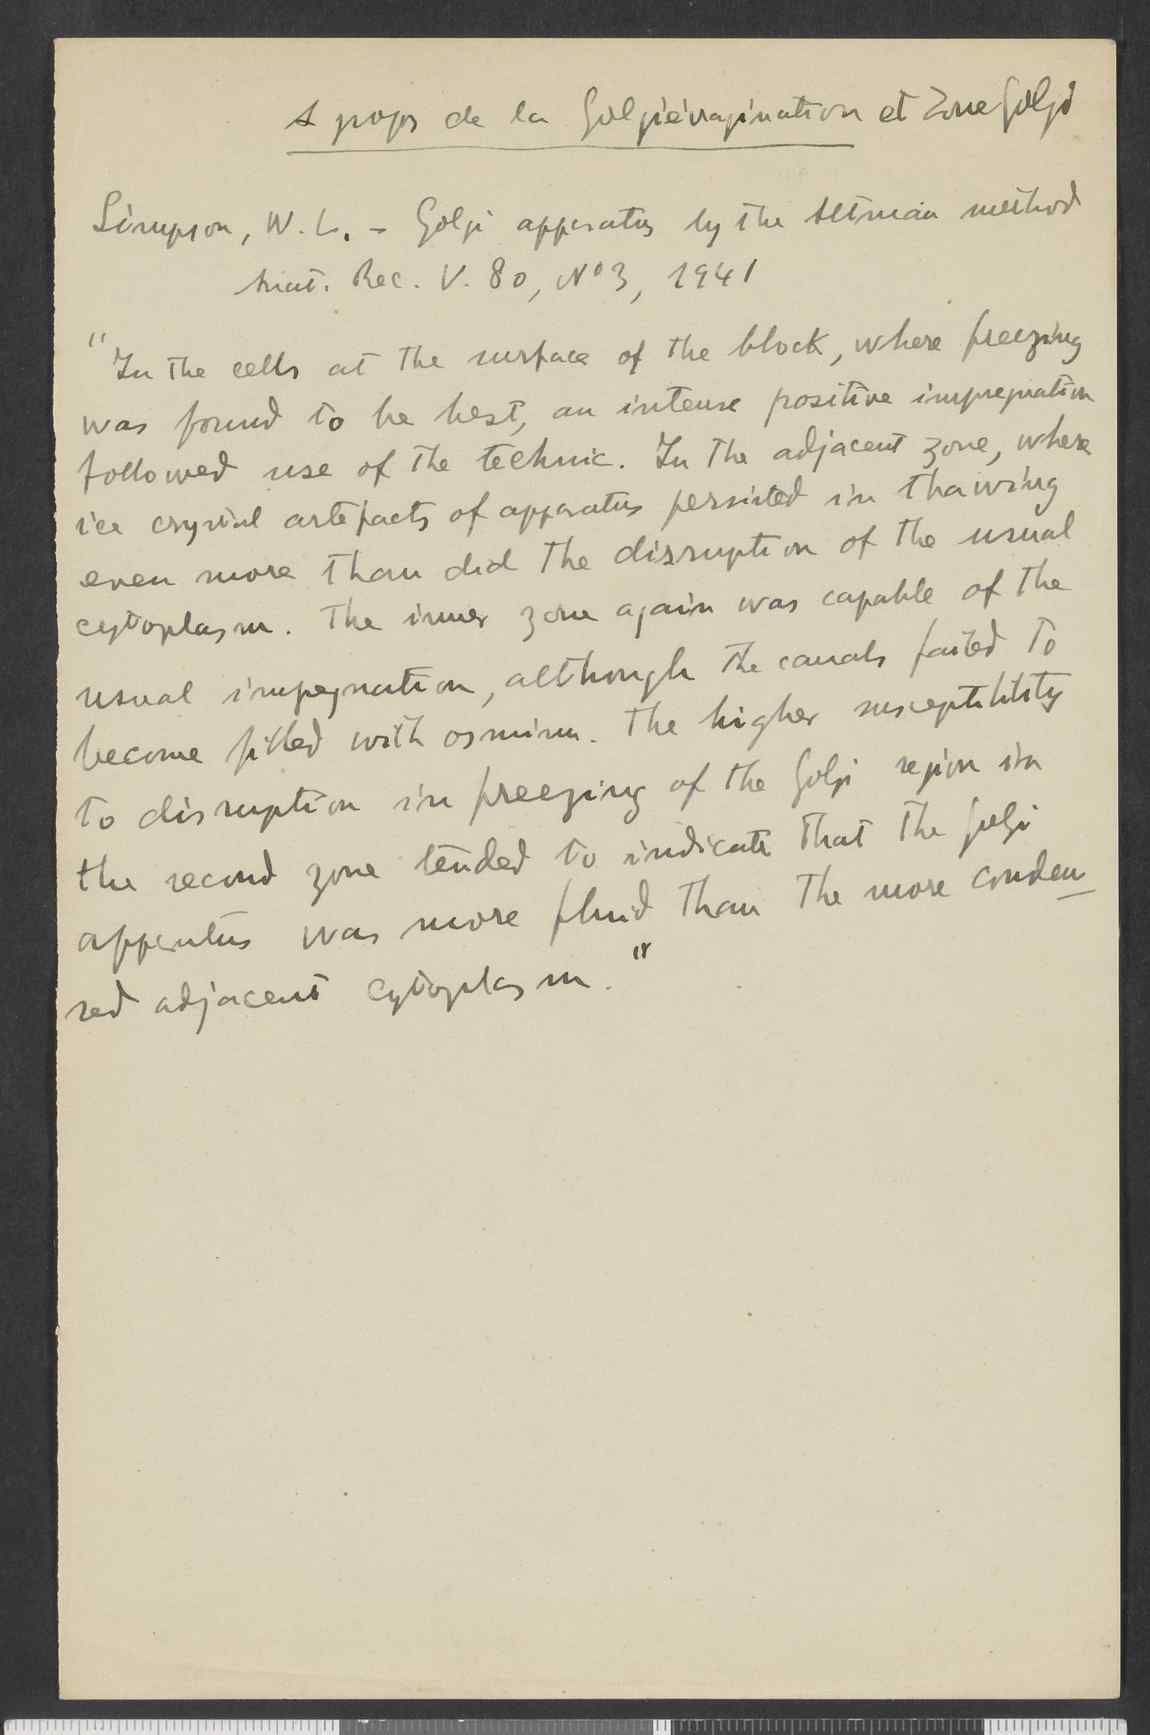 A props de la Golgiévagination et Zone Golgi
Simpson, W. L. - Golgi apparatus by the Altman method
Anat. Rec. V. 80, Nº 3, 1941
"In the cells at the surface of the block, where freezing
was found to be best, an intense positive impregnation
followed use of the technic. In the adjacent zone, where
ice crystal artefacts of apparatus persisted in thawing
even more than did the disruption of the usual
cytoplasm. The inner zone again was capable of the
usual impregnation, although the canals failed to
become filled with osmium. The higher susceptibility
to disruption in freezing of the Golgi region in
the second zone tended to indicate that the golgi
apparatus was more fluid than the more conden
sed adjacent cytoplasm."